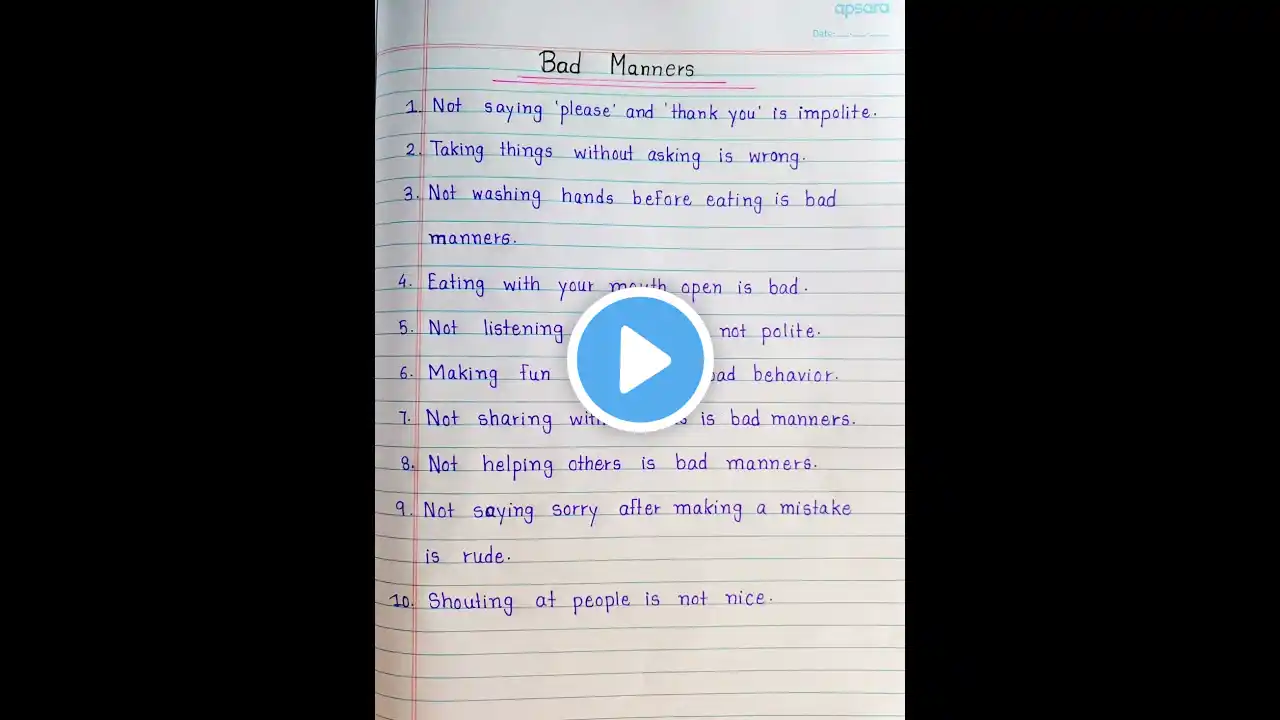 apsara
Date:
Bad Manners
1. Not saying 'please' and 'thank you' is impolite.
2. Taking things without asking is wrong.
3. Not washing hands before eating is bad
manners.
4. Eating with your mouth open is bad.
5. Not listening not polite.
6. Making fun behavior.
7. Not sharing is bad manners.
8. Not helping others is bad manners.
9. Not saying sorry after making a mistake
is rude.
10. Shouting at people is not nice.